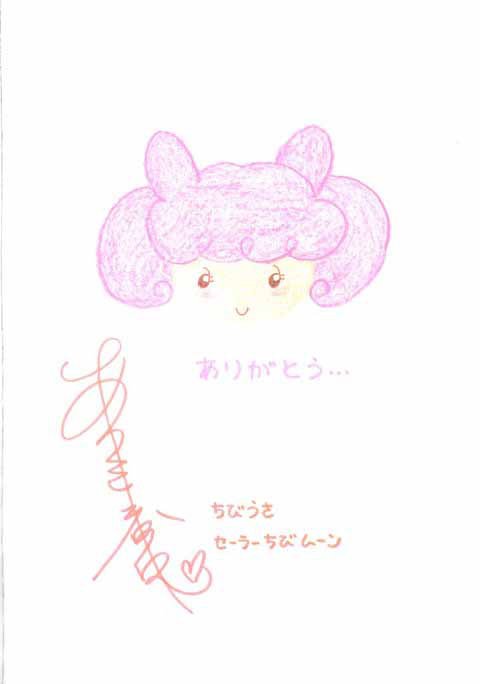 ありがとう…
あらき香恵
ちびうさ
セーラーちびムーン